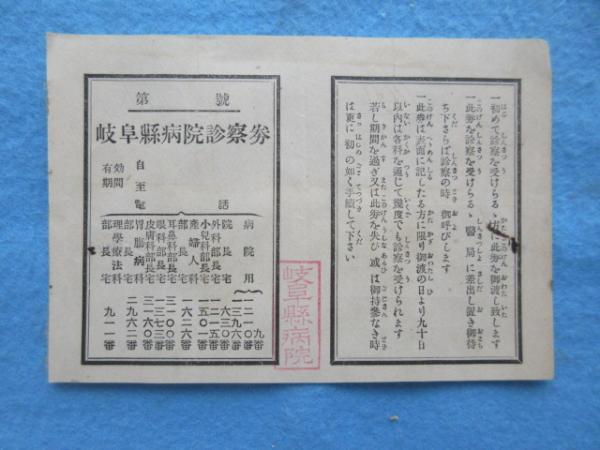 第　　號
岐阜縣病院診察券
有効期間
自
至
電話
病院用
院長宅
外科部長宅
小兒科部長宅
産婦人科部長宅
耳鼻科部長宅
眼科部長宅
皮膚科部長宅
胃腸病科部長宅
理學療法科部長宅
一六二六番
三一〇〇番
一三七三番
三一六〇番
二九六二番
九一一番
岐阜縣病院
一初めて診察を受けらるゝ方に此券を御渡し致します
一此券を診察を受けらるゝ醫局に差出し置き御待
ち下さらば診察の時御呼びします
一此券は表面に記したる方に限り御渡の日より九十日
以内は各科を通じて幾度でも診察を受けられます
若し期間を過ぎ又は此券を失ひ或は御持參なき時
は更に初の如く手續して下さい